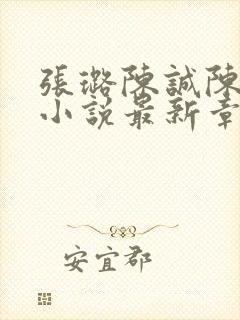 張璐陳誠陳
小說最新章
安宜郡